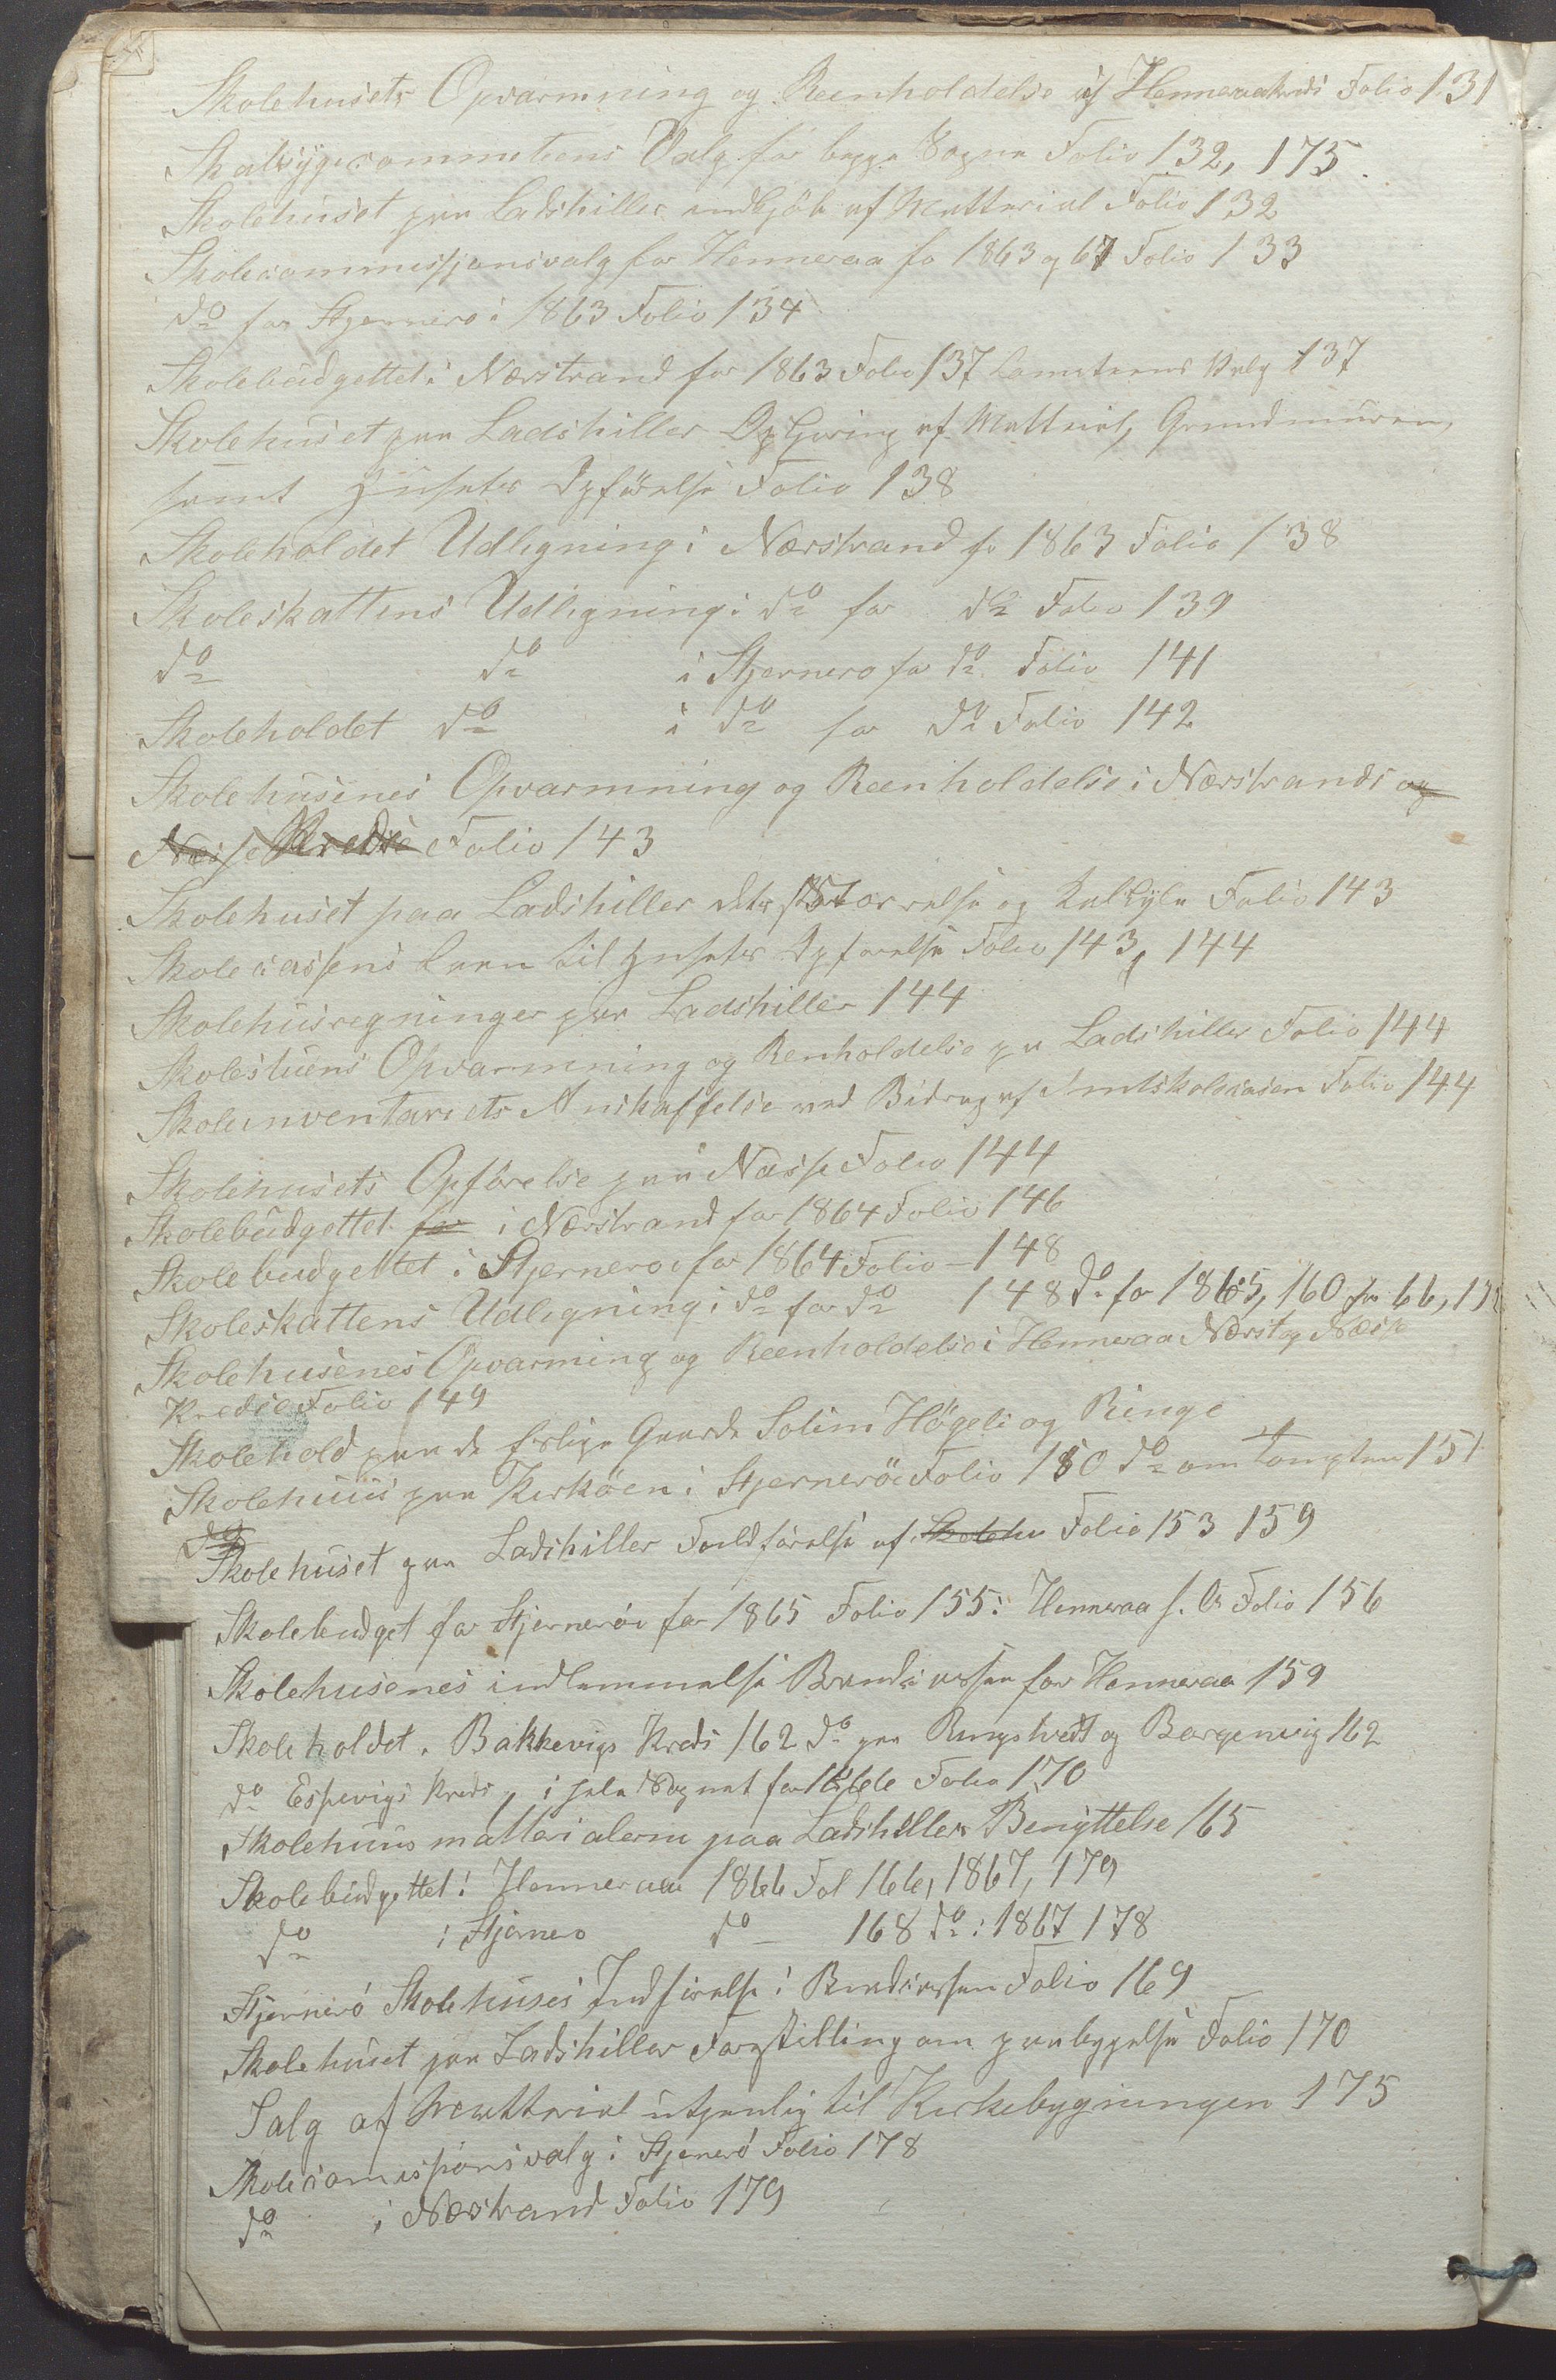 Skolehusets Opvarmning og Reenholdelse af Henneraakreds Folio 131
Valg for begge Sogne Folio 132, 175.
Skolehuset paa Ladshiller indkjöb af Matterial Folio 132
Skolecommissjonsvalg for Henneraa fo 1863 og 67 Folio 133
do for Stjernerö i 1863 Folio 134
Skolebudgettet i Nærstrand for 1863 Folio 137 Valg 137
Skolehuset paa Ladshiller af Mattrial, Grundmuren,
samt Husets Opförelse Folio 138
Skoleholdet Udligning i Nærstrand fo 1863 Folio 138
Skoleskattens Udligning i do for do Folio 139
do do i Stjernero for do Folio 141
Skoleholdet do i do for do Folio 142
Skolehusenes Opvarmning og Reenholdelse i Nærstrands og
Næsse Kredse Folio 143
Skolehuset paa Ladshiller dets Störrelse og Folio 143
Skolecassens Laan til Husets Opförelse Folio 143, 144
Skolehusregninger paa Ladshiller 144
Skolestuens Opvarmning og Renholdelse paa Ladshiller Folio 144
Skoleinventariets Anskaffelse ved Bidrag af Amtskolecasen Folio 144
Skolehusets Opförelse paa Næsse Folio 144
Skolebudgettet for i Nærstrand for 1864 Folio 146
Skolebudgettet i Stjerneroe for 1864 Folio - 148
Skoleskattens Udligning i do for do 148 do for 1865, 160 for 66,
Skolehusenes Opvarming og Reenholdelse i Henneraa Nærst og Næsse
Kredse Folio 149
Skolehold paa de Gaarde Solim Högeli og Ringe
Skolehuus paa Kirköen i Stjernerö Folio 150 do om Tompten 151
do
Skolehuset paa Ladshiller Fuldförelse af Skolehu Folio 153 159
Skolebudget for Stjernerö for 1865 Folio 155 i Henneraa Folio 156
Skolehusenes indlemmelse Brandcassen for Henneraa 159
Skoleholdet i Bakkevigs Kreds 162 do paa Ringstvedt og Borgenvig 162
do Espevigs Kreds, i hele Sognet for 1866 Folio 170
Skolehuus matterialerne paa Ladshiller Benyttelse 165
Skolebudgettet i Henneraa 1866 Fol 166, 1867, 179
do i Stjernero do - 168 do i 1867 178
Stjernerö Skolehuses Indförelse i Brandcassen Folio 169
Skolehuset paa Ladshiller Forestilling om paabyggelse Folio 170
Salg af Matterial utjenlig til Kirkebygningen 175
Skolecomissionsvalg i Stjernerö Folio 178
do i Nærstrand Folio 179